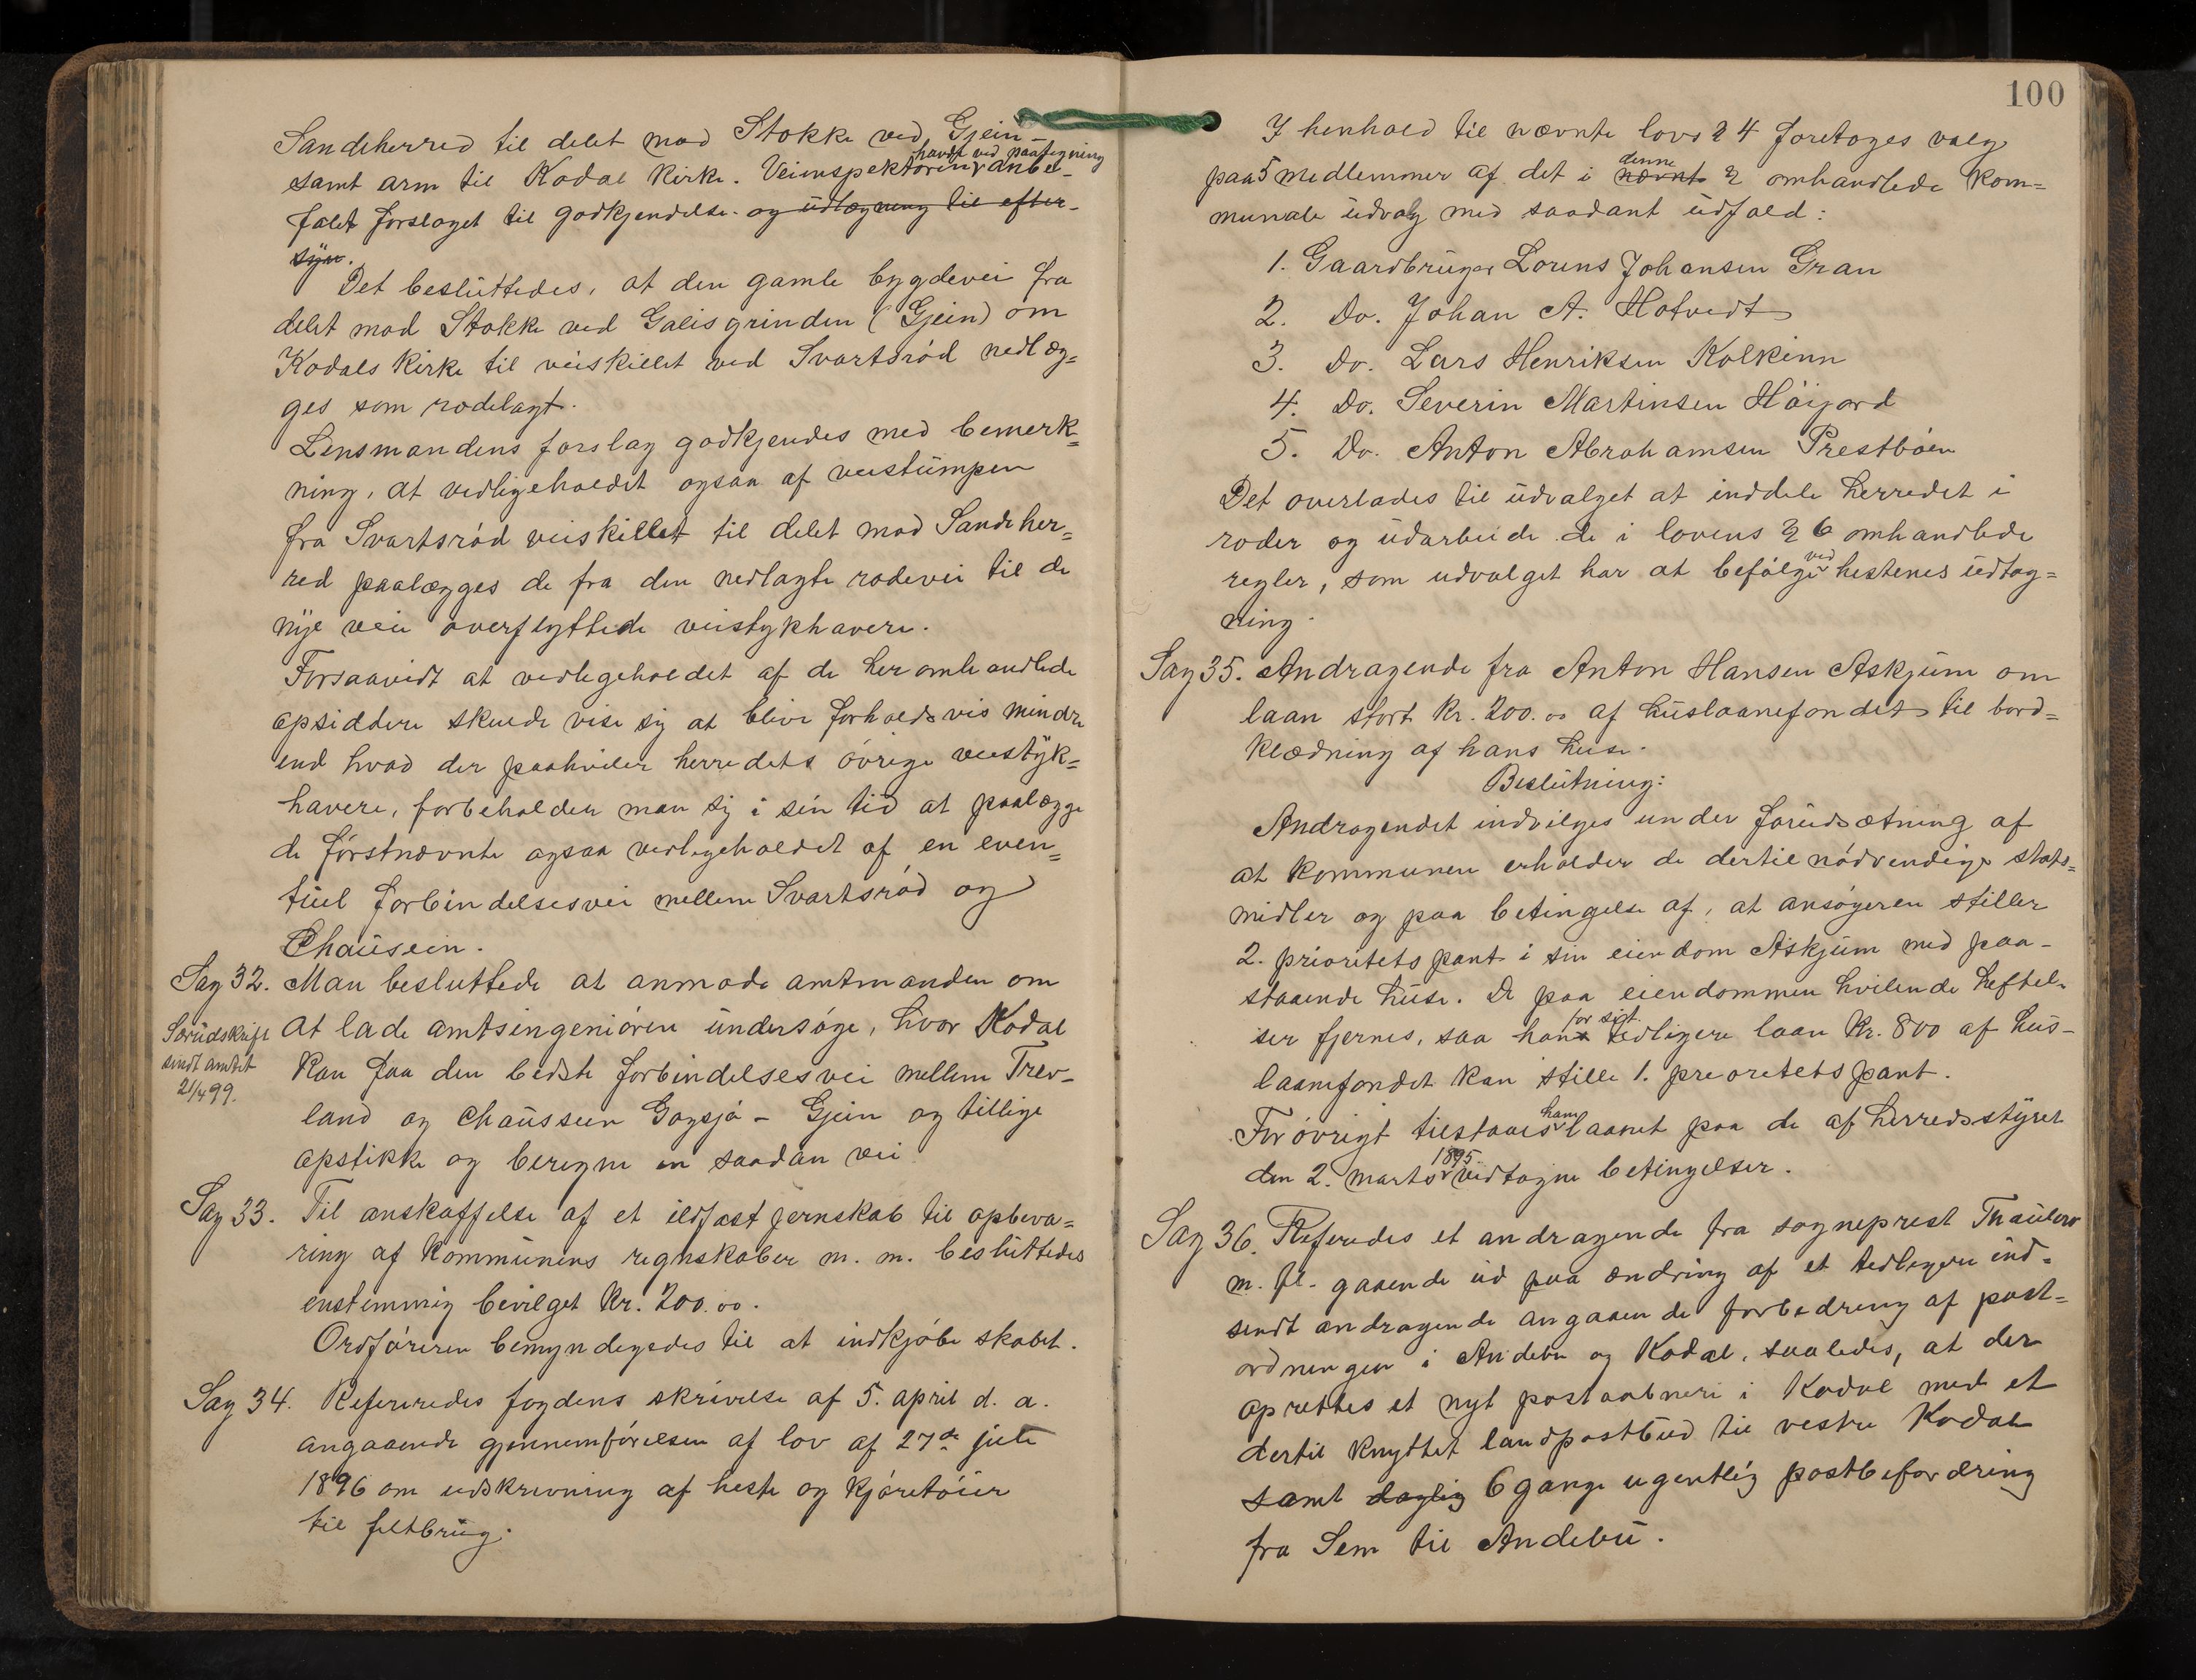 Sandeherred til delet mod Stokke ved Gjein –
samt arm til Kodal Kirke. Veiinspektøren havde ved paategning anbe-
falet forslaget til godkjendelse. og udlægning til efter-
syn.
Det besluttedes, at den gamle bygdevei fra
delet mod Stokke ved Galisgrinden (Gjein) om
Kodals Kirke til veiskillet ved Svartsrød nedlæg=
ges som rodelagt.
Lensmandens forslag godkjendes med bemerk=
ning, at vedligeholdet ogsaa af veistumpen
fra Svartsrød veiskillet til delet mod Sandeher=
red paalægges de fra den nedlagte rodevei til de
nye veie overflyttede veistykhavere.
Forsaavidt at vedligeholdet af de her omhandlede
opsiddere skulde vise sig at blive forholdsvis mindre
end hvad der paahviler herredets øvrige veistyk=
havere, forbeholder man sig i sin tid at paalægge
de førstnævnte ogsaa vedligeholdet af en even=
tuel forbindelsesvei mellem Svartsrød og
Chauseen.
Sag 32. Man besluttede at anmode amtmanden om
at lade amtsingeniøren undersøge, hvor Kodal
Særudskrift
sendt amtet
21/4 99.
kan faa den bedste forbindelsesvei mellem Trev-
land og Chausseen Gogsjø – Gjein og tillige
opstikke og beregne en saadan vei
Sag 33. Til anskaffelse af et ildfast jernskab til opbeva=
ring af Kommunens regnskaber m. m. besluttedes
enstemmig bevilget Kr. 200.00.
Ordføreren bemyndigedes til at indkjøbe skabet.
Sag 34. Refereredes fogdens skrivelse af 5. april d. a.
angaaende gjennemførelsen af lov af 27de juli
1896 om udskrivning af heste og kjøretøier
til feltbrug.
100
I henhold til nævnte lovs § 4 foretoges valg
paa 5 medlemmer af det i nævnt denne § omhandlede kom=
munale udvalg med saadant udfald:
1. Gaardbruger Lorens Johansen Gran
2. Do. Johan A. Hotvedt
3. Do. Lars Henriksen Kolkinn
4. Do. Severin Martinsen Høijord
5. Do. Anton Abrahamsen Prestbøen
Det overlades til udvalget at inddele herredet i
roder og udarbeide de i lovens § 6 omhandlede
regler, som udvalget har at befølge ved hestenes udtag=
ning.
Sag 35. Andragende fra Anton Hansen Askjum om
laan stort Kr. 200.00 af huslaanefondet til bord=
klædning af hans huse.
Beslutning:
Andragendet indvilges under forudsætning af
at kommunen erholder de dertil nødvendige stats=
midler og paa betingelse af, at ansøgeren stiller
2. prioritets pant i sin eiendom Askjum med paa-
staaende huse. De paa eiendommen hvilende heftel-
ser fjernes, saa han for sit tidligere laan Kr. 800 af hus-
laanefondet kan stille 1. preoritets pant.
For øvrigt tilstaaes ham laanet paa de af herredsstyret
den 2. marts 1895 vedtagne betingelser.
Sag 36. Referedes et andragende fra sogneprest Thaulow
m. fl. gaaende ud paa ændring af et tidligere ind=
sendt andragende angaaende forbedring af post=
ordningen i Andebu og Kodal, saaledes, at der
oprettes et nyt postaabneri i Kodal med et
dertil knyttet landpostbud til vestre Kodal
samt daglig 6 gange ugentlig postbefordring
fra Sem til Andebu.